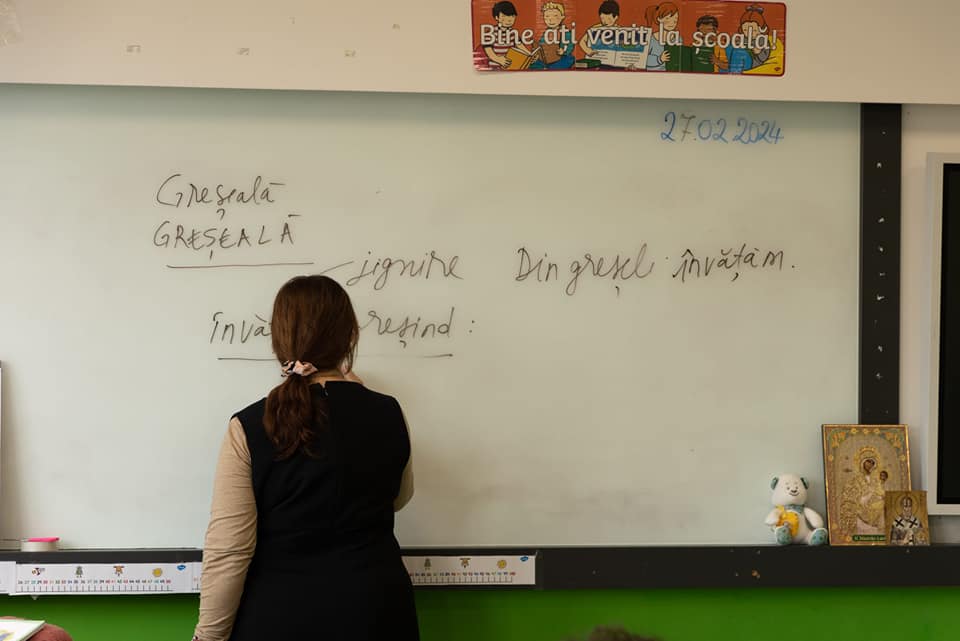 Bine ați venit la școală!
27.02.2024
Greșeală
GREȘEALĂ
jignire Din greșeli învățăm.
învă reșind :